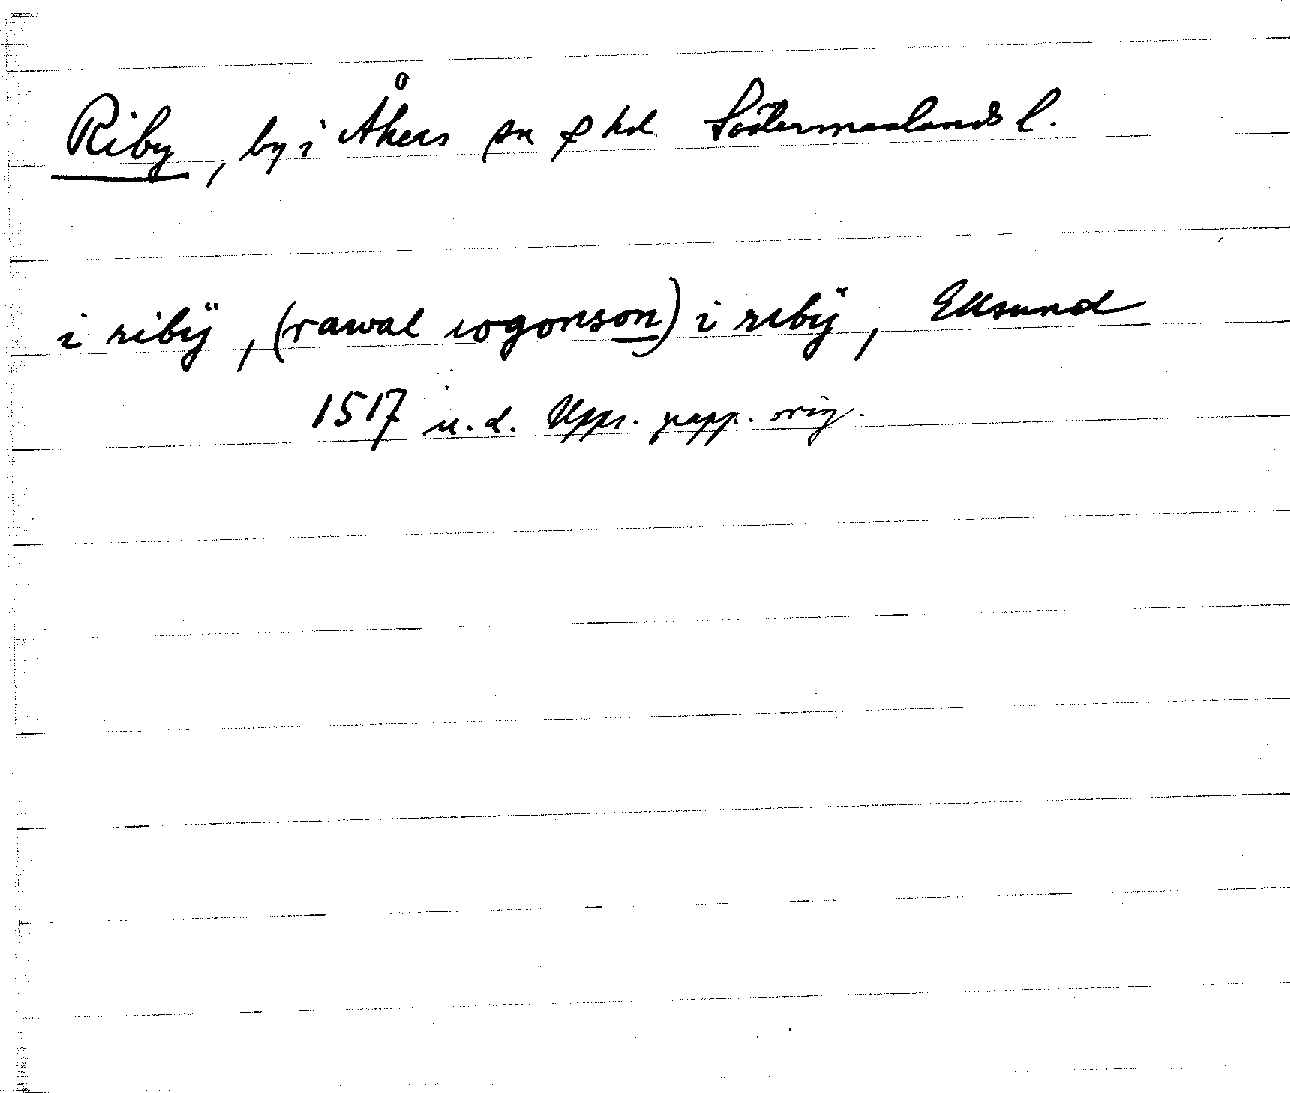 Riby, by i Åkers sn o hd Södermanlands l.
i ribÿ, (rawal iogonson) i ribÿ, Eksund
1517 u.d. Upps. papp. orig.